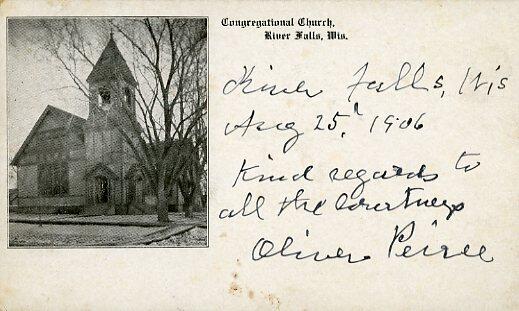 Congregational Church,
River Falls, Wis.
River Falls, Wis
Aug 25, 1906
Kind regards to
all the Courtneys
Oliver Peirce